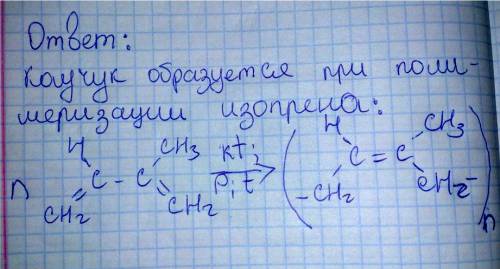 Ответ:
Каучук образуется при поли-
меризации изопрена:
n CH₂ = C H - C CH₃ = CH₂ kt; p,t → ( -CH₂ H C = C CH₃ CH₂- )n